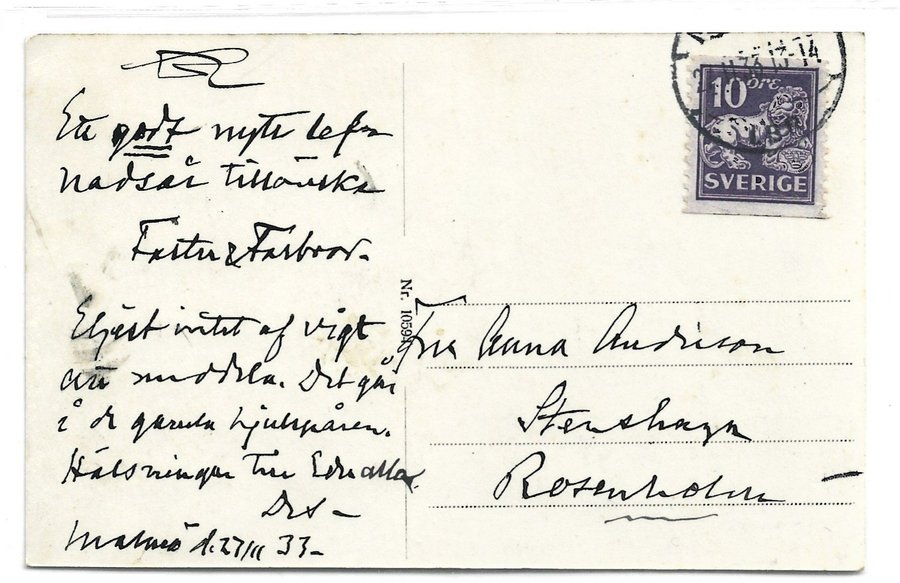 Ett godt nytt lef-
nadsår tillönska
Faster & Farbror.
Eljest intet af vigt
att meddela. Det går
i de gamla hjulspåren.
Hälsningar till Eder alla.
Ds-
Malmö d. 27/11 33-
Nr. 1059
Fru Anna Anderson
Stenshaga
Rosenholm
10 öre
SVERIGE